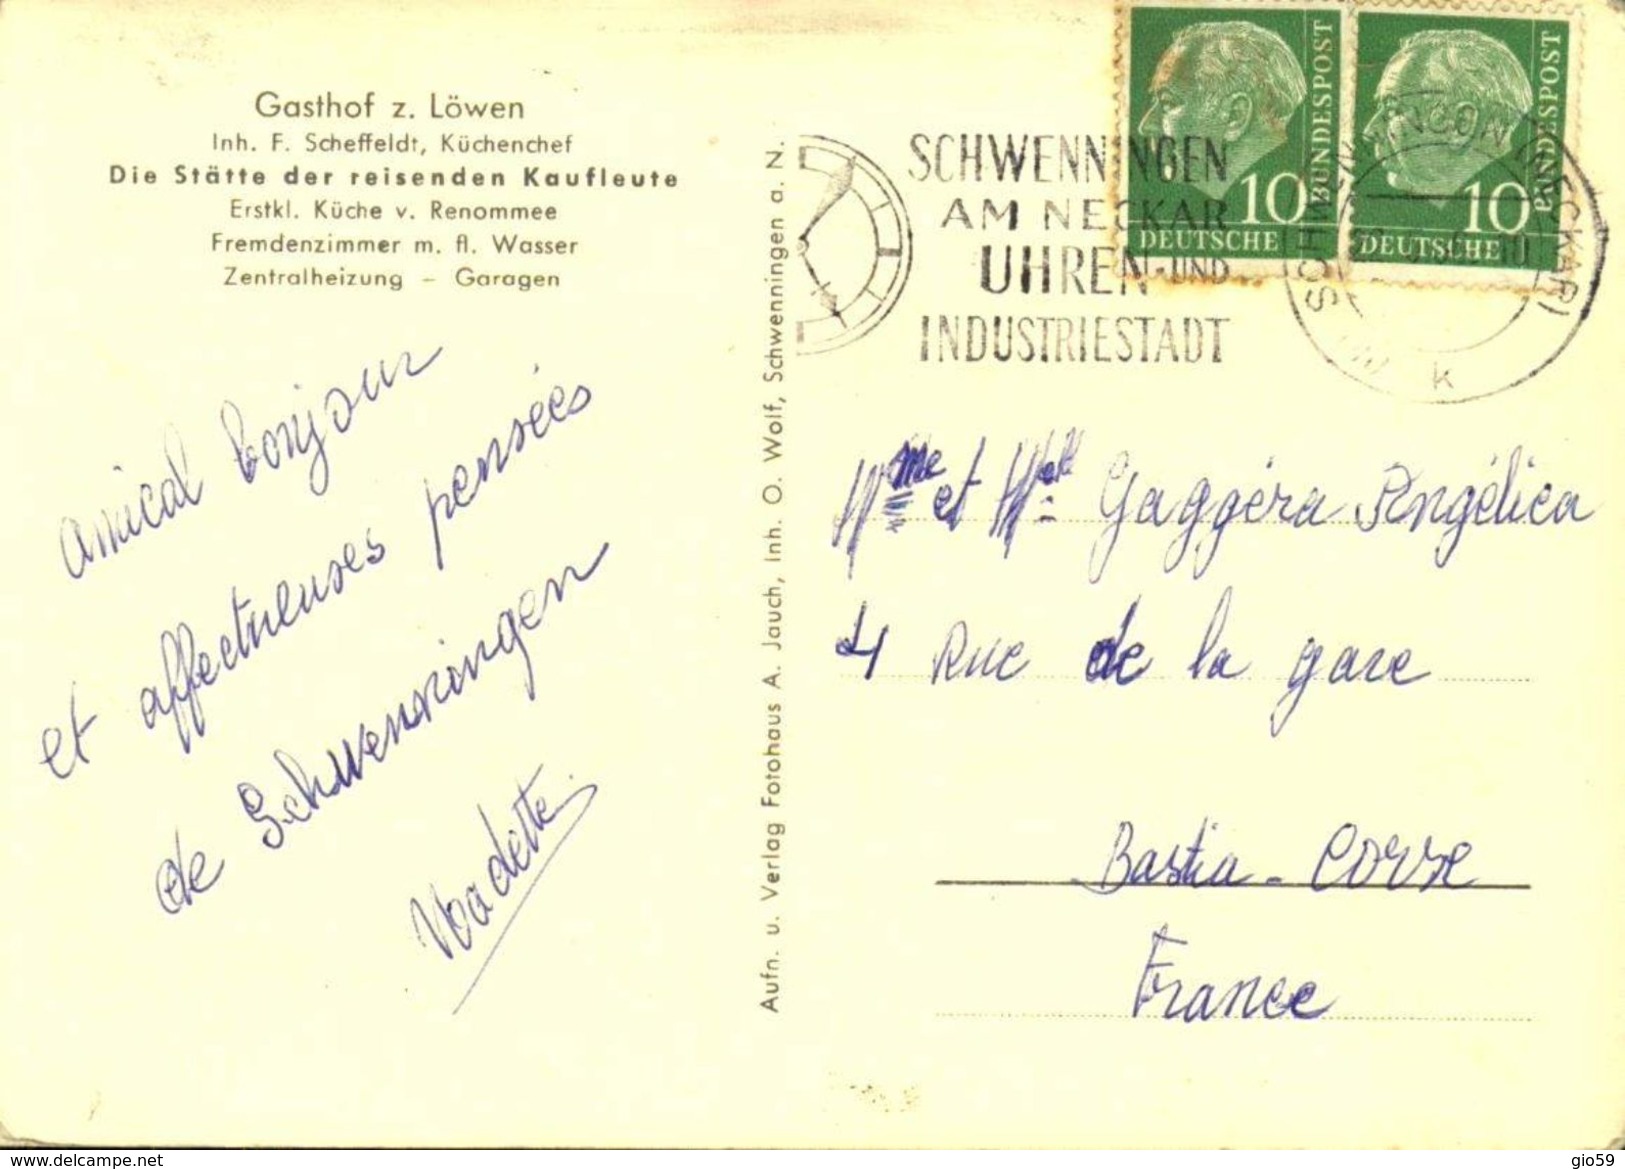 Gasthof z. Löwen
Inh. F. Scheffeldt, Küchenchef
Die Stätte der reisenden Kaufleute
Erstkl. Küche v. Renommee
Fremdenzimmer m. fl. Wasser
Zentralheizung – Garagen
amical bonjour
et affectueuses pensées
de Schwenningen
Aufn. u. Verlag Fotohaus A. Jauch, Inh. O. Wolf, Schwenningen a. N.
SCHWENNINGEN
AM NECKAR
UHREN UND
INDUSTRIESTADT
10
DEUTSCHE
BUNDESPOST
10
DEUTSCHE
BUNDESPOST
SCHWENNINGEN (NECKAR)
k
Mme et Melle Gaggéra Angélica
4 Rue de la gare
Bastia - Corse
France
www.delcampe.net
gio59